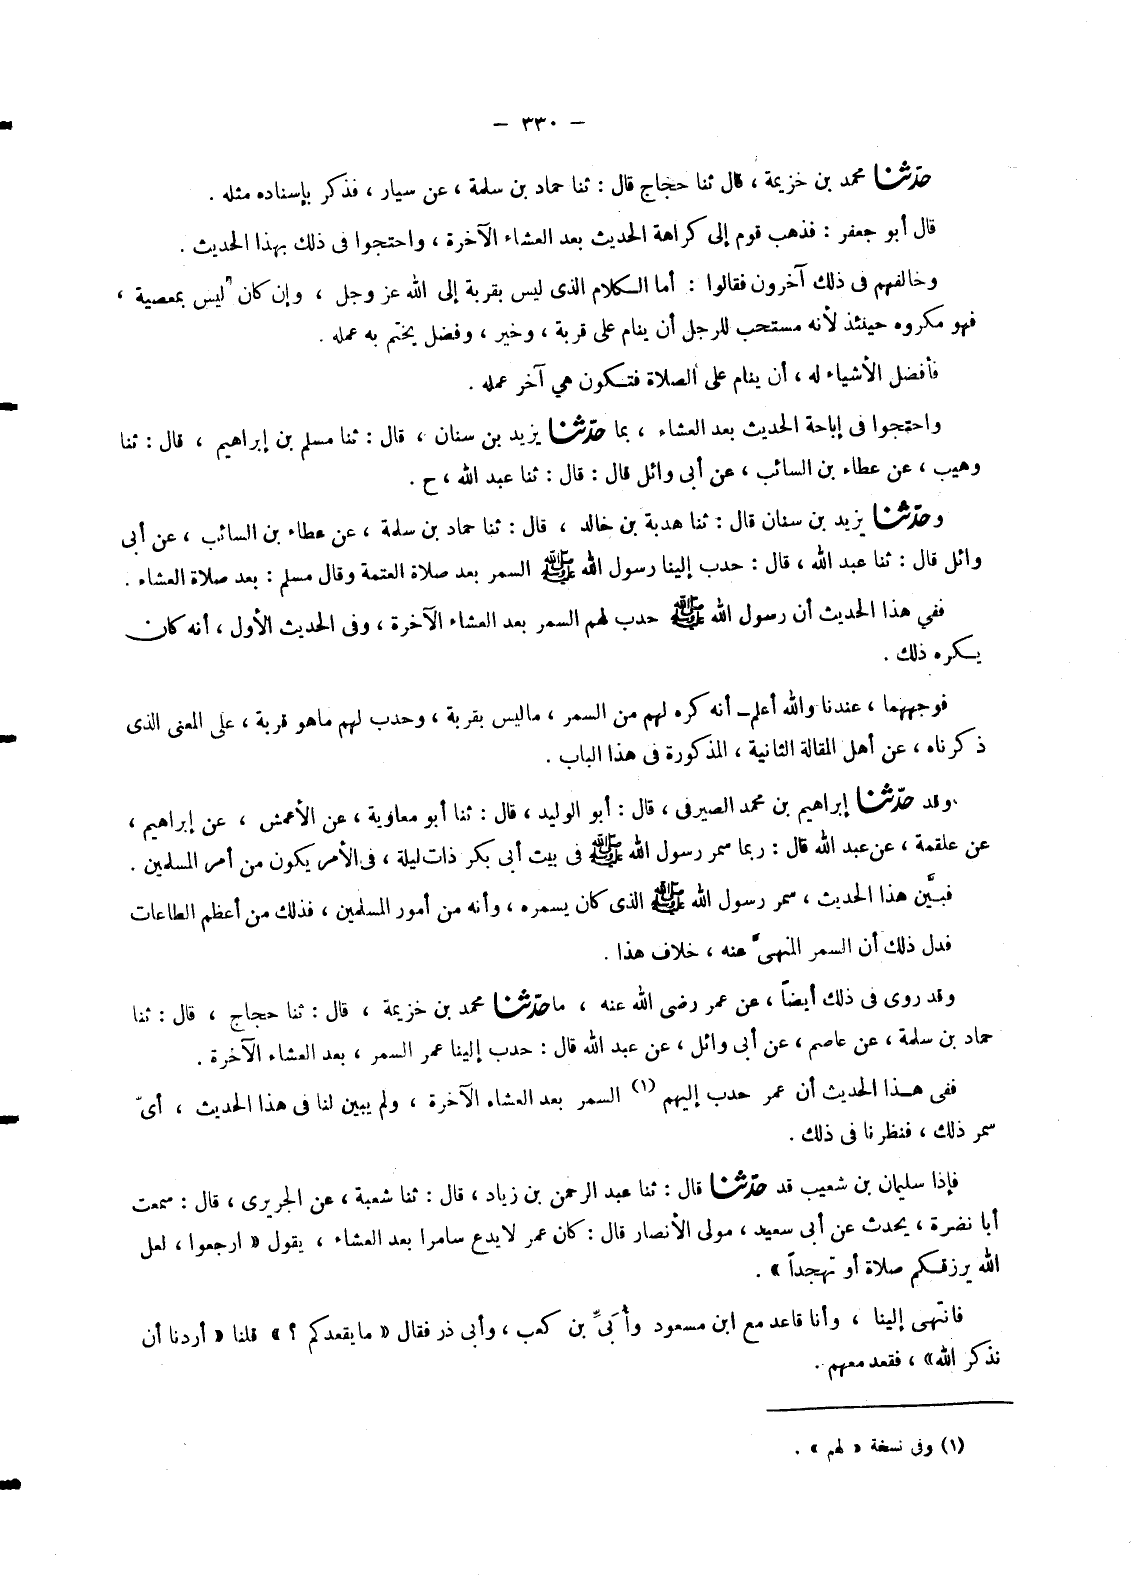 — ٣٣٠ —
حدّثنا محمد بن خزيمة ، قال ثنا حجاج قال : ثنا حماد بن سلمة ، عن سيار ، فذكر بإسناده مثله .
قال أبو جعفر : فذهب قوم إلى كراهة الحديث بعد العشاء الآخرة ، واحتجوا فى ذلك بهذا الحديث .
وخالفهم فى ذلك آخرون فقالوا : أما الكلام الذى ليس بقربة إلى الله عز وجل ، وإن كان ليس بمعصية ،
فهو مكروه حينئذ لأنه مستحب للرجل أن ينام على قربة ، وخير ، وفضل يختم به عمله .
فأفضل الأشياء له ، أن ينام على الصلاة فتكون هي آخر عمله .
واحتجوا فى إباحة الحديث بعد العشاء ، بما حدّثنا يزيد بن سنان ، قال : ثنا مسلم بن إبراهيم ، قال : ثنا
وهيب ، عن عطاء بن السائب ، عن أبى وائل قال : قال : ثنا عبد الله ، ح .
وحدّثنا يزيد بن سنان قال : ثنا هدبة بن خالد ، قال : ثنا حماد بن سلمة ، عن عطاء بن السائب ، عن أبى
وائل قال : ثنا عبد الله ، قال : حدب إلينا رسول الله ﷺ السمر بعد صلاة العتمة وقال مسلم : بعد صلاة العشاء .
ففي هذا الحديث أن رسول الله ﷺ حدب لهم السمر بعد العشاء الآخرة ، وفى الحديث الأول ، أنه كان
يكره ذلك .
فوجههما ، عندنا والله أعلم ــ أنه كره لهم من السمر ، ماليس بقربة ، وحدب لهم ماهو قربة ، على المعنى الذى
ذكرناه ، عن أهل المقالة الثانية ، المذكورة فى هذا الباب .
وقد حدّثنا إبراهيم بن محمد الصيرفى ، قال : أبو الوليد ، قال : ثنا أبو معاوية ، عن الأعمش ، عن إبراهيم ،
عن علقمة ، عن عبد الله قال : ربما سمر رسول الله ﷺ فى بيت أبى بكر ذات ليلة ، فى الأمر يكون من أمر المسلمين .
فبيَّن هذا الحديث ، سمر رسول الله ﷺ الذى كان يسمره ، وأنه من أمور المسلمين ، فذلك من أعظم الطاعات
فدل ذلك أن السمر المنهىَّ عنه ، خلاف هذا .
وقد روى فى ذلك أيضاً ، عن عمر رضى الله عنه ، ماحدّثنا محمد بن خزيمة ، قال : ثنا حجاج ، قال : ثنا
حماد بن سلمة ، عن عاصم ، عن أبى وائل ، عن عبد الله قال : حدب إلينا عمر السمر ، بعد العشاء الآخرة .
ففى هذا الحديث أن عمر حدب إليهم (١) السمر بعد العشاء الآخرة ، ولم يبين لنا فى هذا الحديث ، أىّ
سمر ذلك ، فنظرنا فى ذلك .
فإذا سليمان بن شعيب قد حدّثنا قال : ثنا عبد الرحمن بن زياد ، قال : ثنا شعبة ، عن الجريرى ، قال : سمعت
أبا نضرة ، يحدث عن أبى سعيد ، مولى الأنصار قال : كان عمر لايدع سامرا بعد العشاء ، يقول « ارجعوا ، لعل
الله يرزقكم صلاة أو تهجداً » .
فانتهى إلينا ، وأنا قاعد مع ابن مسعود وأُبَىِّ بن كعب ، وأبى ذر فقال « مايقعدكم ؟ » قلنا « أردنا أن
نذكر الله» ، فقعد معهم .
(١) وفى نسخة « لهم » .